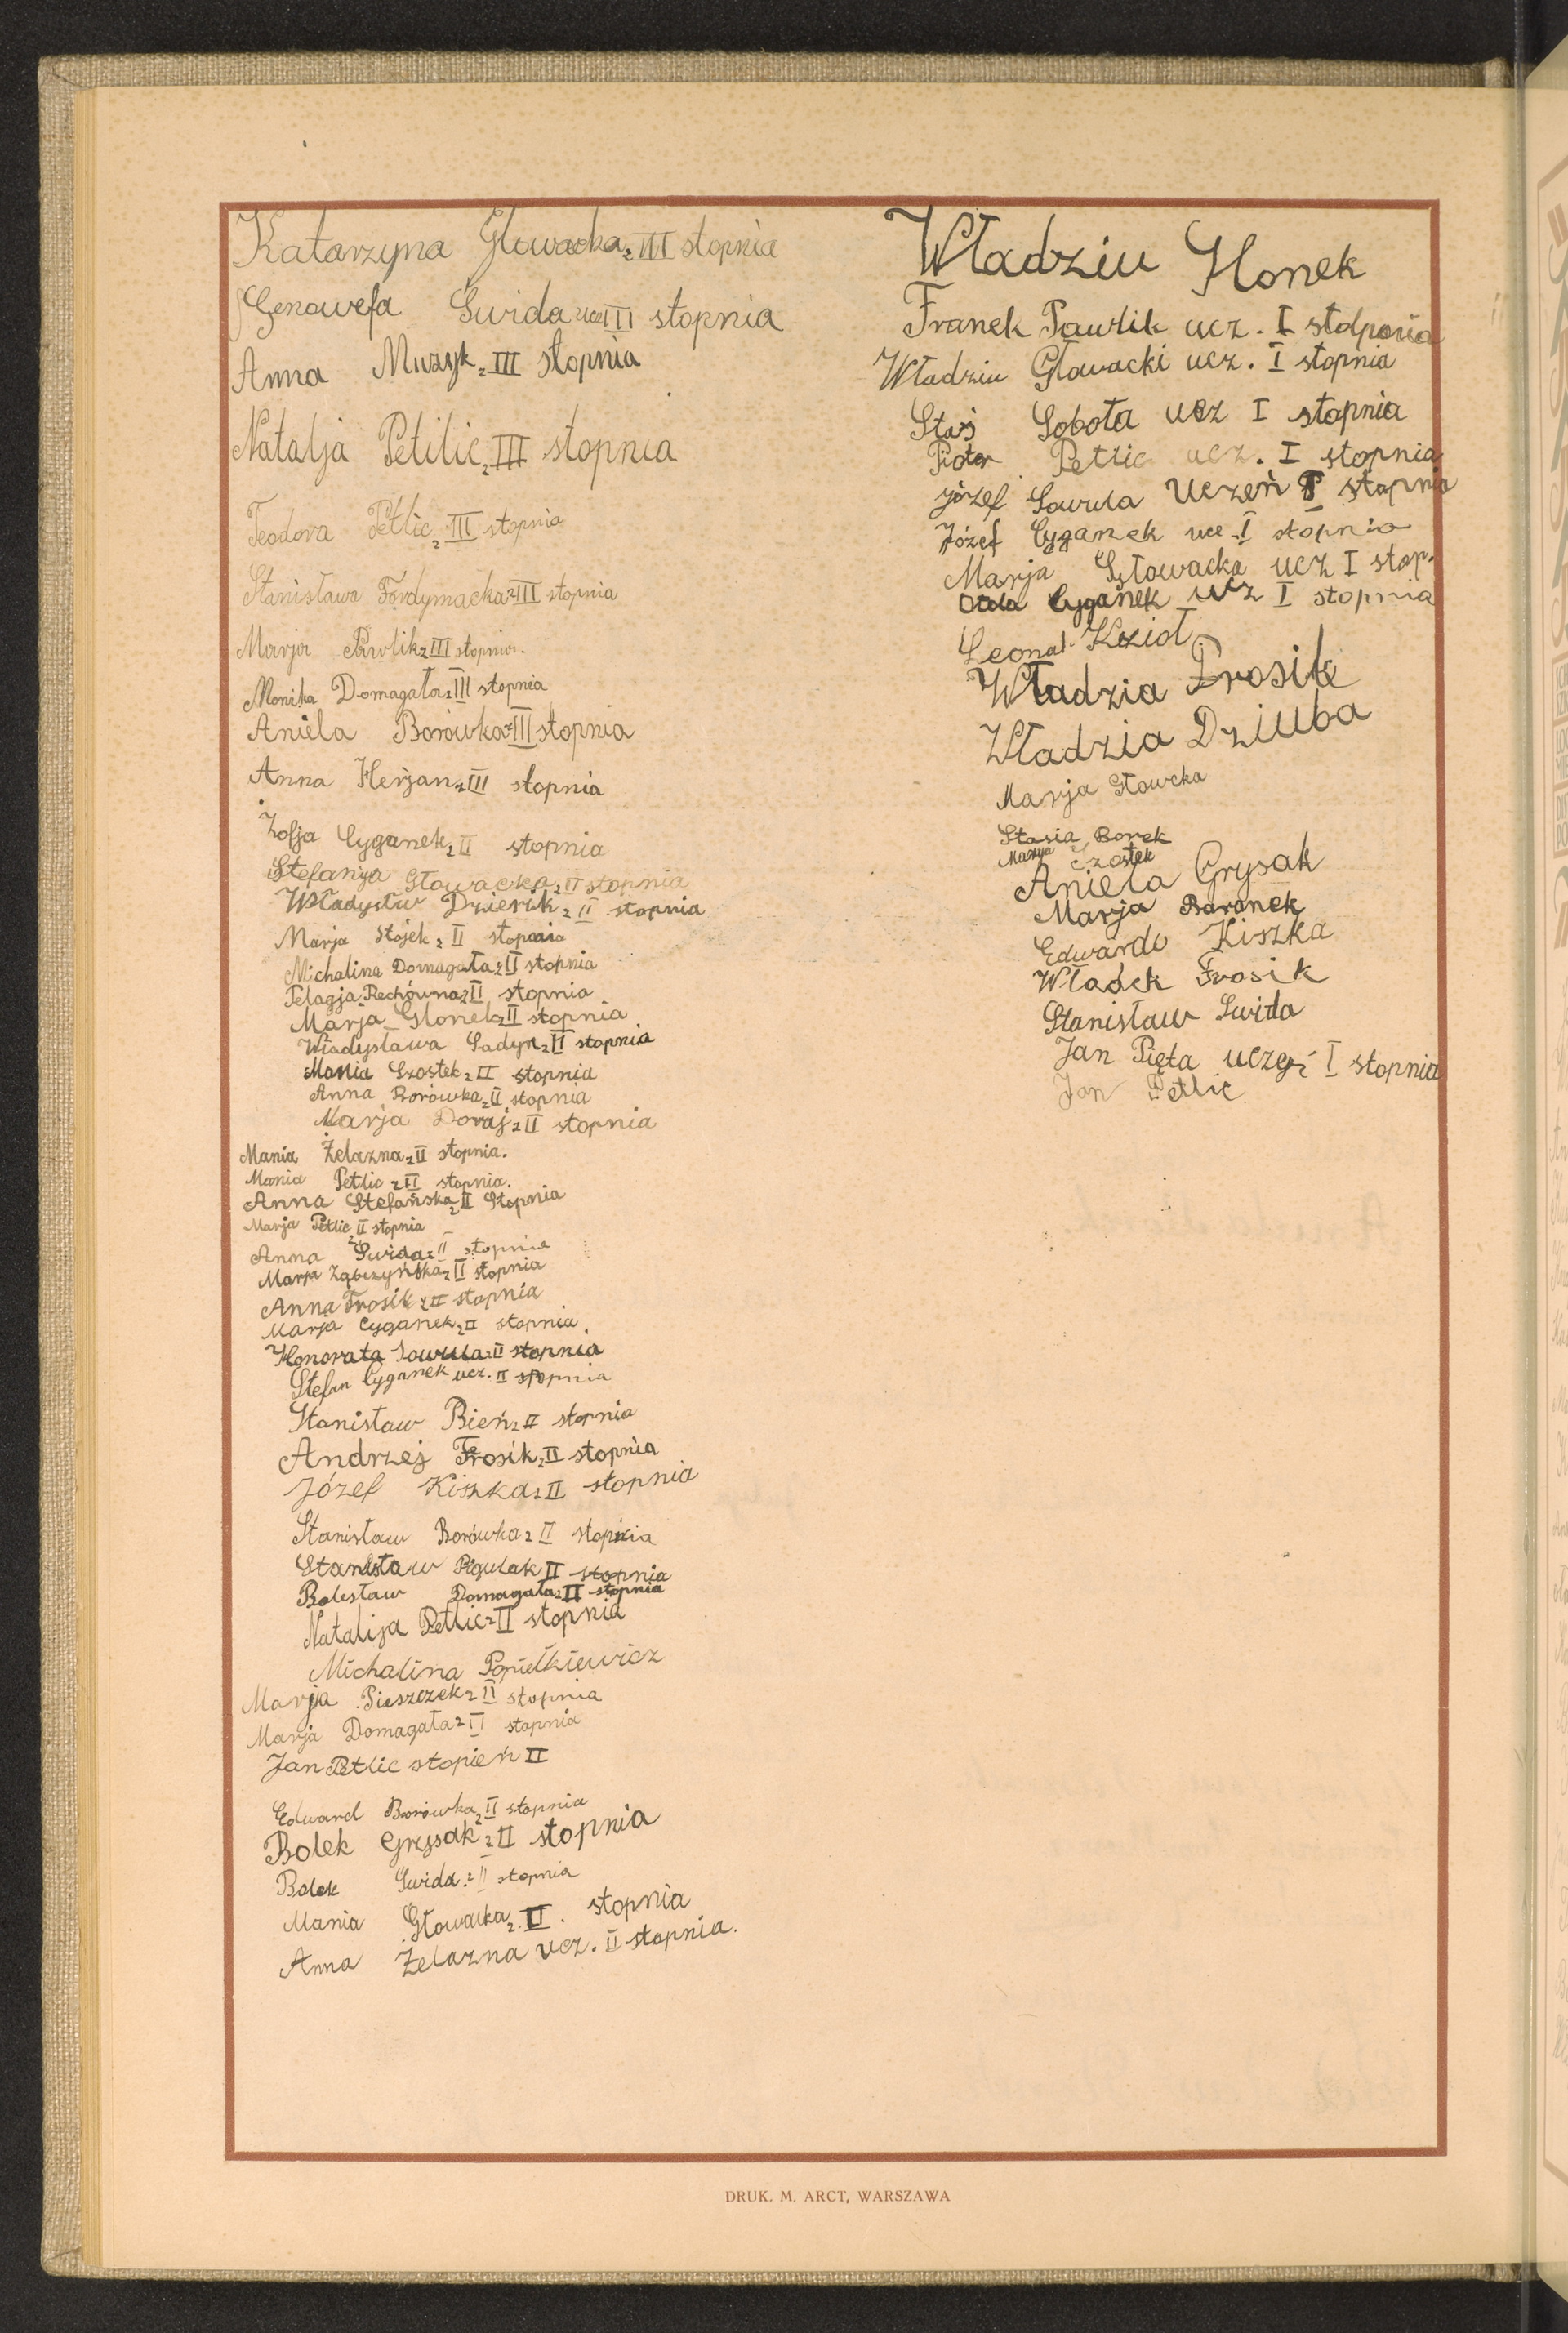 Katarzyna Głowacka z III stopnia
Genowefa Świda ucz III stopnia
Anna Muzyk z III stopnia
Natalja Petlic z III stopnia
Teodora Petlic z III stopnia
Stanisława Fordymacka z III stopnia
Marja Pawlik z III stopnia.
Monika Domagała z III stopnia
Aniela Borówka z III stopnia
Anna Herjan z III stopnia
Zofja Cyganek z II stopnia
Stefanja Głowacka z II stopnia
Władysław z II stopnia
Marja Stojek z II stopnia
Michalina Domagała z II stopnia
Pelagja Rechówna z II stopnia
Marja Glonek z II stopnia
Władysława Sadyn z II stopnia
Mania Czostek z II stopnia
Anna Borówka z II stopnia
Marja Doraj z II stopnia
Mania Żelazna z II stopnia.
Mania Petlic z II stopnia.
Anna Stefańska z II Stopnia
Marja Petlic z II stopnia
Anna Świda z II stopnia
Marja Ząbczyńska z II stopnia
Anna Frosik z II stopnia
Marja Cyganek z II stopnia.
Honorata Sowula z II stopnia
Stefan Cyganek ucz. II stopnia
Stanisław Bień z II stopnia
Andrzej Frosik z II stopnia
Józef Kiszka z II stopnia
Stanisław Borówka z II stopnia
Stanisław Pigułak II stopnia
Bolesław Domagała z II stopnia
Natalija Petlic z II stopnia
Michalina Popielkiewicz
Marja Pieszczek z II stopnia
Marja Domagała z II stopnia
Jan Petlic stopień II
Edward Borówka z II stopnia
Bolek Grysak z II stopnia
Bolek Świda z II stopnia
Mania Głowacka z II. stopnia
Anna Żelazna ucz. II stopnia.
Władziu Glonek
Franek Pawlik ucz. I stolponia
Władziu Głowacki ucz. I stopnia
Staś Sobota ucz I stopnia
Piotr Petlic ucz. I stopnia
Józef Sowula Uczeń I stopnia
Józef Cyganek ucz. I stopnia
Marja Głowacka ucz I stop.
Cyganek ucz I stopnia
Kozioł
Władzia Frosik
Władzia Dziuba
Marja Głowcka
Stasia Borek
Marja Czostek
Aniela Grysak
Marja Baranek
Edwardo Kiszka
Władek Frosik
Stanisław Świda
Jan Pięta uczeń I stopnia
Jan Petlic
DRUK. M. ARCT, WARSZAWA